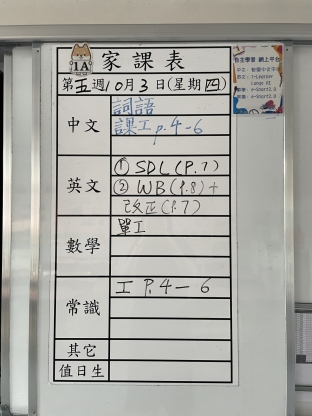 1A
家課表
第五週10月3日(星期四)
中文
詞語
課工 p.4-6
英文
① SDL(P.7)
② WB(P.8)+
改正(P.7)
數學
單工
常識
工 P.4-6
其它
值日生
自主學習 網上平台